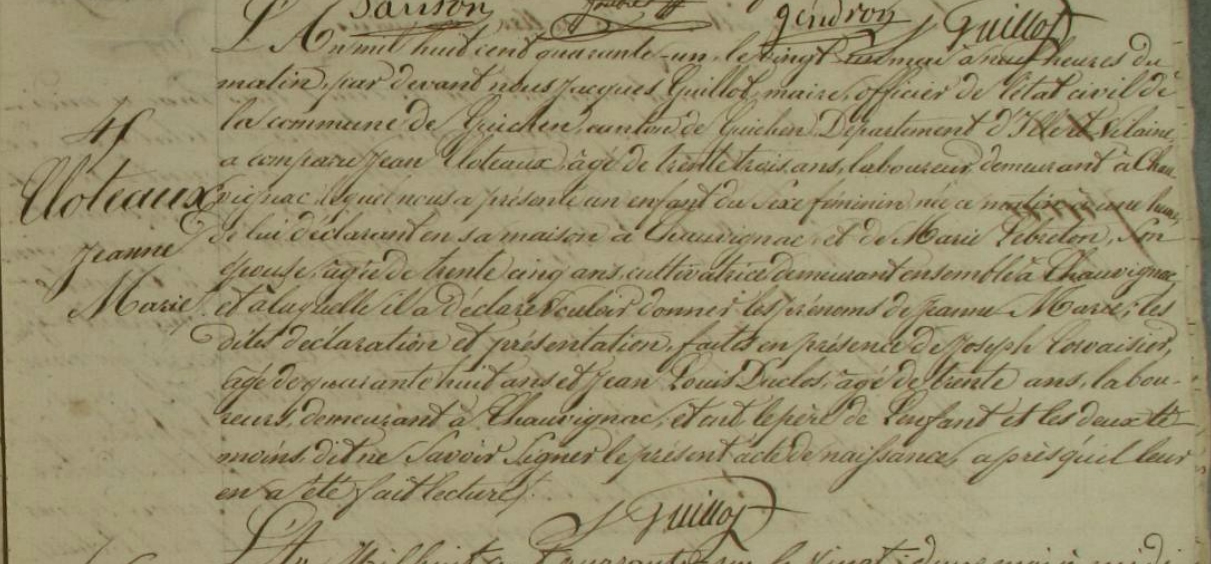 Sanson gendron J Guillot
L'An mil huit cent quarante-un, le vingt un mai à neuf heures du
matin, par devant nous Jacques Guillot, maire, officier de l'état civil de
la commune de Guichen, canton de Guichen Département d'Ille et Vilaine
a comparu Jean Cloteaux, âgé de trente trois ans, laboureur, demeurant à Chau
vignac, lequel nous a présenté un enfant du Sexe féminin née ce matin à une heure,
de lui déclarant en sa maison à Chauvignac, et de Marie Lebreton, Son
épouse, âgée de trente cinq ans, cultivatrice demeurant ensemble à Chauvignac
et à laquelle il a déclaré vouloir donner les prénoms de Jeanne Marie; les
dites déclaration et présentation, faites en présence de Joseph
âgé de quarante huit ans et Jean Louis Duclos, âgé de trente ans, labou-
reurs, demeurant à Chauvignac, et ont le père de l'enfant et les deux té
moins, dit ne Savoir Signer le présent acte de naissance, après qu'il leur
en a été fait lecture.
J Guillot
41
Cloteaux
Jeanne
Marie
L'An Mil huit cent quarante un le vingt